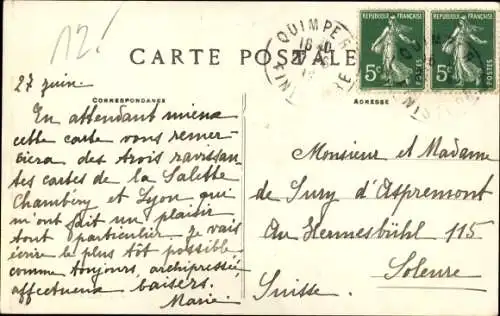 12!
CARTE POSTALE
QUIMPER
FINISTERE
18-10
REPUBLIQUE FRANÇAISE
5c
POSTES
REPUBLIQUE FRANÇAISE
5c
POSTES
CORRESPONDANCE
ADRESSE
27 juin.
En attendant mieux
cette carte vous remer-
ciera des trois ravissan-
tes cartes de la Salette
Chambéry et Lyon qui
m'ont fait un plaisir
tout particulier je vais
écrire le plus tôt possible
comme toujours, archipressée
affectueux baisers.
Marie.
Monsieur et Madame
de Sury d'Aspremont
Au Hermesbühl 115
Soleure
Suisse.